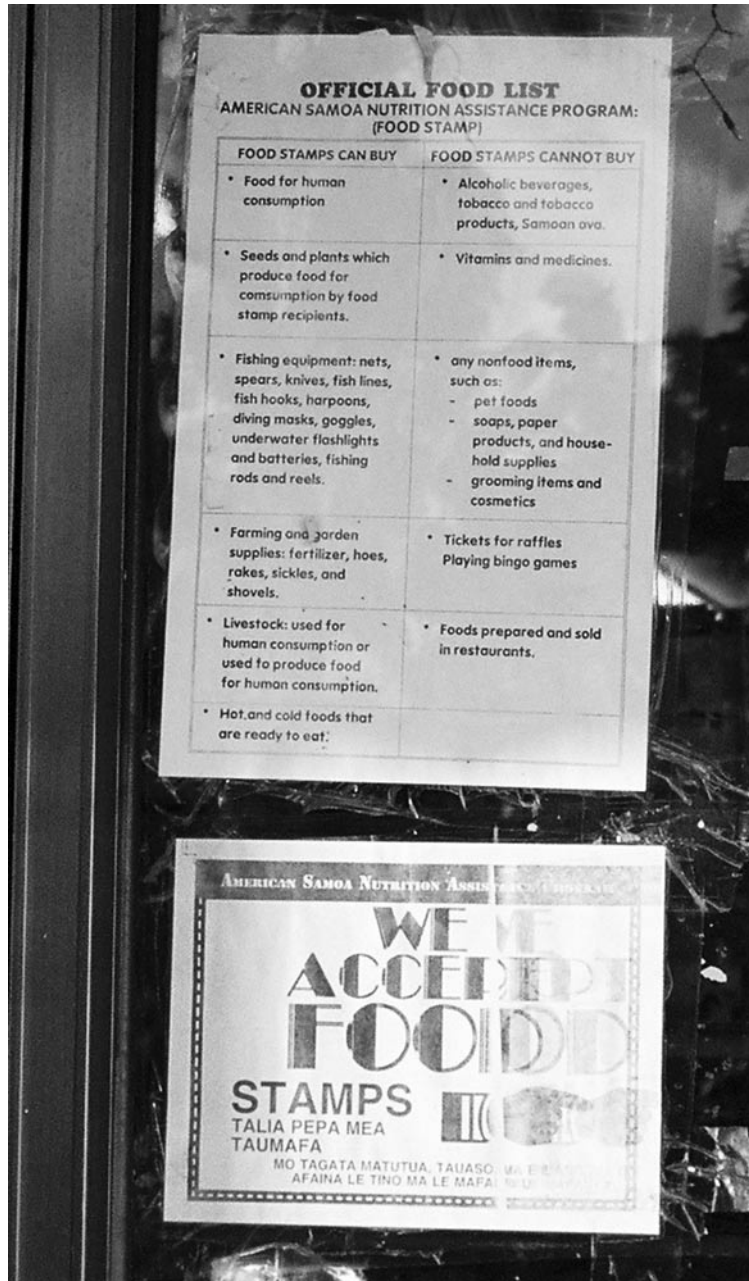 OFFICIAL FOOD LIST
AMERICAN SAMOA NUTRITION ASSISTANCE PROGRAM:
(FOOD STAMP)
FOOD STAMPS CAN BUY
FOOD STAMPS CANNOT BUY
• Food for human
consumption
• Alcoholic beverages,
tobacco and tobacco
products, Samoan ava.
• Seeds and plants which
produce food for
comsumption by food
stamp recipients.
• Vitamins and medicines.
• Fishing equipment: nets,
spears, knives, fish lines,
fish hooks, harpoons,
diving masks, goggles,
underwater flashlights
and batteries, fishing
rods and reels.
• any nonfood items,
such as:
- pet foods
- soaps, paper
products, and house-
hold supplies
- grooming items and
cosmetics
• Farming and garden
supplies: fertilizer, hoes,
rakes, sickles, and
shovels.
• Tickets for raffles
Playing bingo games
• Livestock: used for
human consumption or
used to produce food
for human consumption.
• Foods prepared and sold
in restaurants.
• Hot and cold foods that
are ready to eat.
AMERICAN SAMOA NUTRITION
WE
ACCEPT
FOOD
STAMPS
TALIA PEPA MEA
TAUMAFA
MO TAGATA MATUTUA, TAUASO,
AFAINA LE TINO MA LE